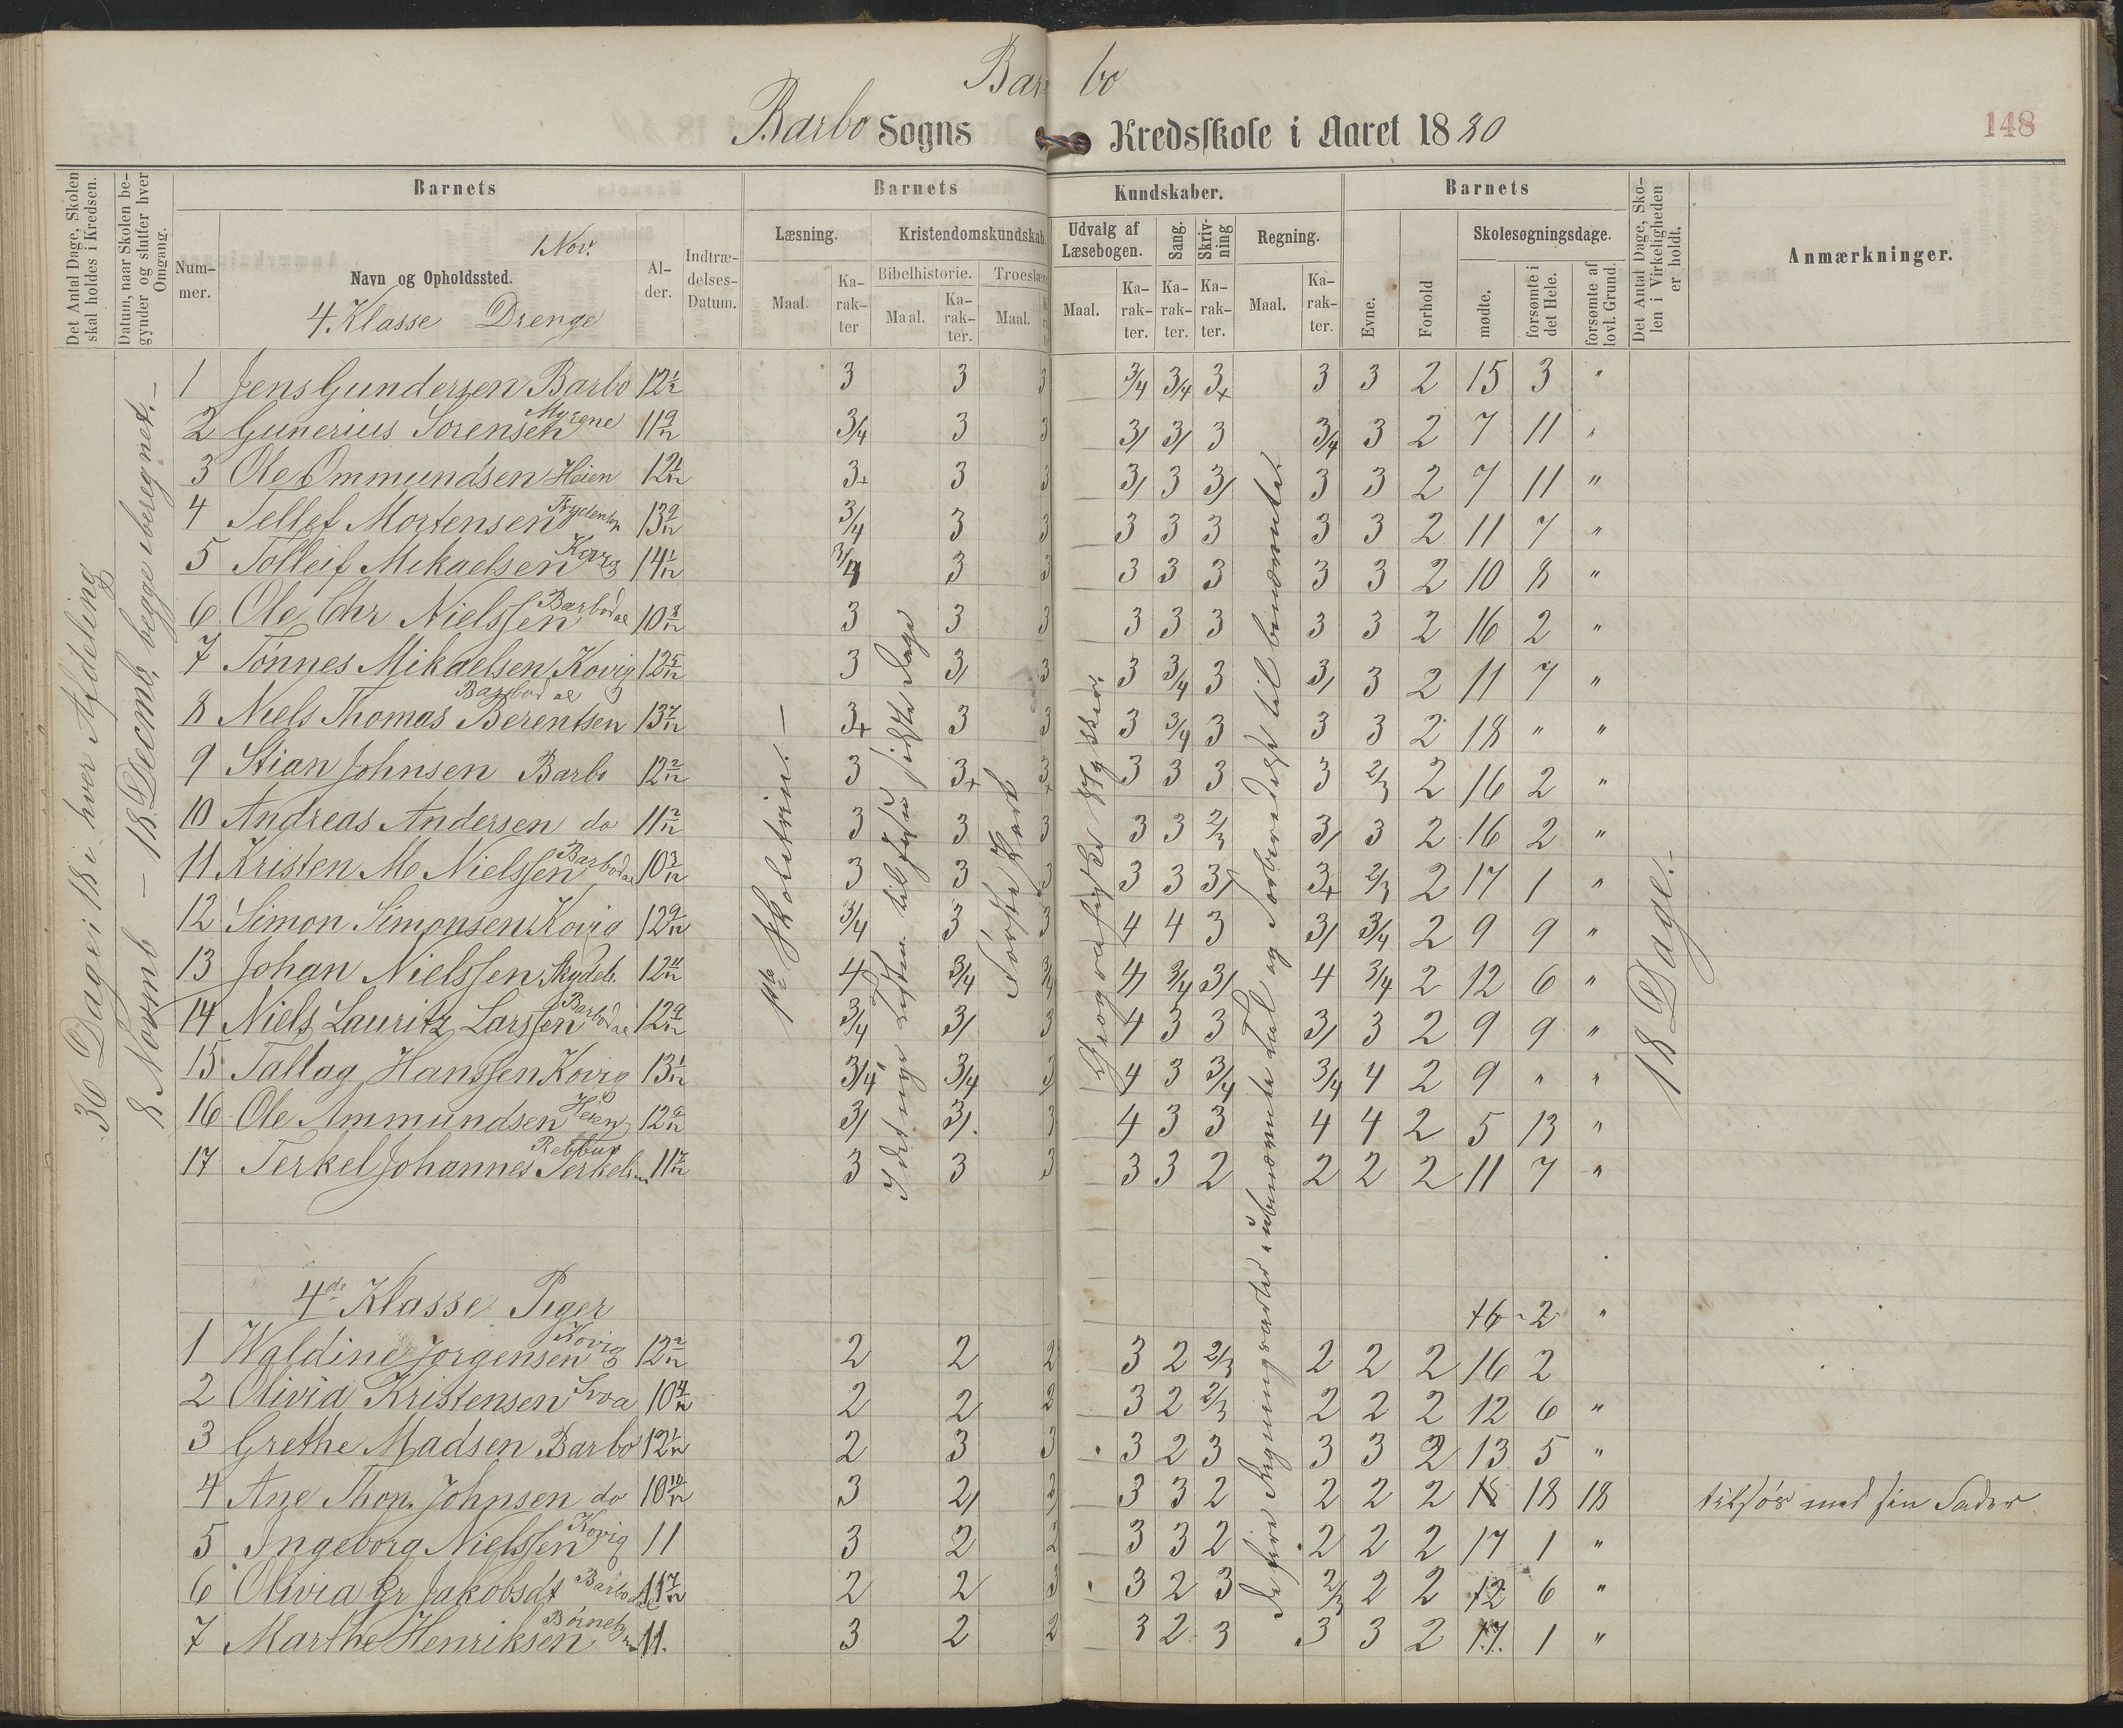 Barbo
Barbo Sogns Kredsskole i Aaret 1880
148
Det Antal Dage, Skolen skal holdes i Kredsen.
Datum, naar Skolen begynder og slutter hver Omgang.
Barnets
Barnets
Kundskaber.
Barnets
Det Antal Dage, Skolen i Virkeligheden er holdt.
Anmærkninger.
Nummer.
Navn og Opholdssted.
1 Nov.
Alder.
Indtrædelses-Datum.
Læsning.
Kristendomskundskab.
Udvalg af Læsebogen.
Sang.
Skrivning
Regning.
Evne.
Forhold
Skolesøgningsdage.
Maal.
Karakter
Bibelhistorie.
Troeslære
Maal.
Karakter.
Maal.
Maal.
Karakter.
Karakter.
Karakter.
Maal.
Karakter.
mødte.
forsømte i det Hele.
forsømte af lovl. Grund.
4. Klasse Drenge
36 Dage i 18 i hver Afdeling
8 Novemb – 18 Decemb, begge iberegnet. –
Første Part
18 Dage. –
1 Jens Gundersen Barbo 12 1/12 3 3 3 3/4 3/4 3+ 3 3 2 15 3 "
2 Gunerius Sorensen Myrene 11 9/12 3/4 3 3 3/ 3/ 3 3/4 3 2 7 11 "
3 Ole Ommundsen Heien 12 1/12 3+ 3 3 3/ 3 3/ 3 3 2 7 11 "
4 Tellef Mortensen 13 9/12 3/4 3 3 3 3 3 3 3 2 11 7 "
5 Tolleif Mikaelsen Kovig 14 1/12 3/4 3 3 3 3 3 3 3 2 10 8 "
6 Ole Chr Nielssen Barbodal 10 8/12 3 3 3 3 3 3 3 3 2 16 2 "
7 Tönnes Mikaelsen Kovig 12 5/12 3 3/ 3 3 3/4 3 3/ 3 2 11 7 "
8 Niels Thomas Berentsen Barbodal 13 7/12 3+ 3 3 3 3/4 3 3 3 2 18 " "
9 Stian Johnsen Barbo 12 2/12 3 3+ 3+ 3 3 3 3 2/3 2 16 2 "
10 Andreas Andersen do 11 2/12 3 3 3 3 3 2/3 3/ 3 2 16 2 "
11 Kristen M Nielssen Barbodal 10 3/12 3 3 3 3 3 3/ 3+ 2/3 2 17 1 "
12 Simon Simonsen Kovig 12 9/12 3/4 3 3 4 4 3 3/ 3/4 2 9 9 "
13 Johan Nielssen Skydeb. 12 11/12 4 3/4 3/4 4/ 3/4 3/ 4 3/4 2 12 6 "
14 Niels Lauritz Larssen Barbodal 12 9/12 3/4 3/ 3 4 3 3 3/ 3 2 9 9 "
15 Tallag Hanssen Kovig 13 1/12 3/4 3/4 3 4 3 3/4 3/4 4 2 9 " "
16 Ole Ammundsen Heien 12 9/12 3/ 3/. 3 4 3 3 4 4 2 5 13 "
17 Terkel Johannes Terkelsen 11 7/12 3 3 3 3 3 2 2 2 2 11 7 "
4de Klasse Piger
16 - 2 "
1 Waldine Jorgensen Kovig 12 2/12 2 2 2 3 2 2/3 2 2 2 16 2
2 Olivia Kristensen Svoa 10 4/12 2 2 2 3 2 2/3 2 2 2 12 6 "
3 Grethe Madsen Barbo 12 1/12 2 3 3 3 2 3 3 3 2 13 5 "
4 Ane Thon. Johnsen do 10 10/12 3 2/ 2 3 3 2 2 2 2 18 18 18
5 Ingeborg Nielssen Kovig 11 3 2 2 3 3 2 2 2 2 17 1 "
6 Olivia Gr Jakobsdt Barbodal 11 7/12 2 2 3 3 2 3 2/3 2 2 12 6 "
7 Marthe Henriksen 11. 3 2 2 3 2 3 3 3 2 17. 1 "